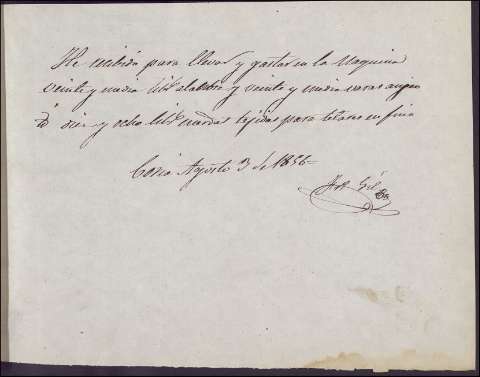 He recibido para llevar y gastar en la Maquina
veinte y media lib.s alambre y veinte y media varas
diez y ocho lib.s cuerdas tejidas para telares en fina
Agosto 3 de 1856
Gil